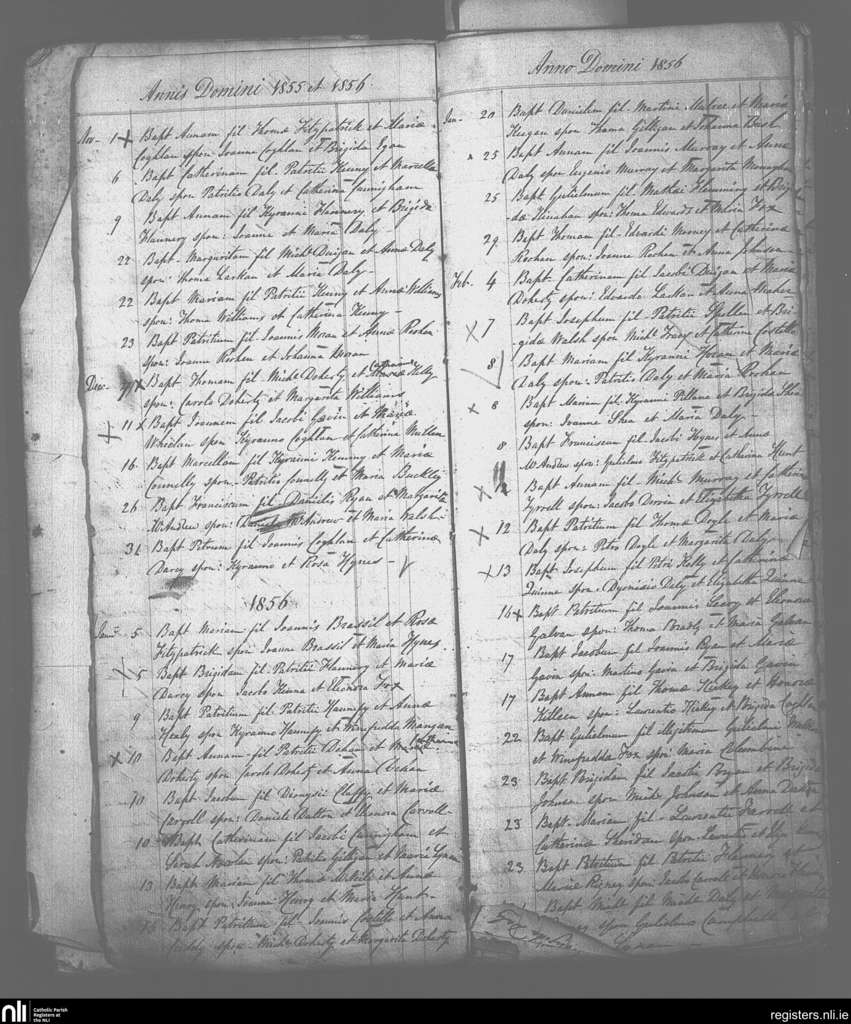 Annis Domini 1855 et 1856
Nov. 1 Bapt Annam fil: Thomæ Fitzpatrick et Mariæ
Coghlan spon: Joanne Coghlan et Brigida Egan
6 Bapt Catherinam fil: Patritii Kenny et Marcella
Daly spon Patritio Daly et Catherina Cunningham
9 Bapt Annam fil Kyranni Flannery et Brigidæ
Flannery spon: Joanne et Maria Daly -
22 Bapt Margaritam fil Michl Duigan et Annæ Daly
spon: Thoma Larkan et Maria Daly -
22 Bapt Mariam fil Patritii Kenny et Annæ Williams
spon: Thoma Williams et Catherina Kenny -
23 Bapt Patritium fil Joannis Moran et Annæ Rohan
spon: Joanne Rohan et Johanna Moran
Dec. Bapt Thomam fil Michl Doherty et Catherinæ Kelly
spon: Carolo Doherty et Margarita Williams
11 Bapt Joannem fil Jacobi Gavin et Mariæ
Whielan spon Kyranno Coghlan et Catherina Mullen
16 Bapt Marcellam fil Kyranni Kenny et Mariæ
Connelly spon - Patritio Connelly et Maria Buckley
26 Bapt Franciscum fil Danielis Ryan et Margaritæ
McAndrew spon: Daniele McAndrew et Maria Walsh -
31 Bapt Petrum fil Joannis Coghlan et Catherinæ
Darcy spon: Kyranno et Rosa Hynes -
1856
Janr. 5 Bapt Mariam fil Joannis Brassil et Rosæ
Fitzpatrick spon Joanne Brassil et Maria Hynes
5 Bapt Brigidam fil: Patritii Flannery et Mariæ
Darcy spon: Jacobo Kenna et Eleonora Fox
9 Bapt Patritium fil Patritii Haunfy et Annæ
Healy spon Kyranno Haunfy et Winefredda Mangan
10 Bapt Annam fil Patritii Dehan et Catherinæ
Doherty spon Carolo Doherty et Anna Dehan
10 Bapt Jacobum fil Dionysii Claffy et Mariæ
Carroll spon: Daniele Dalton et Honora Carroll -
10 Bapt Catherinam fil Jacobi Cunningham et
Sarah spon: Patritio Gilligan et Maria
13 Bapt Mariam fil Thomæ et Annæ
Henry spon: Joanne Henry et Maria Hunt -
Bapt Patritium fil Joannis Costello et Annæ
spon - Michl Doherty et Margarita Doherty
Anno Domini 1856
Jan. 20 Bapt Danielem fil Martini Malee et Mariæ
Keegan spon Thoma Gilligan et Johanna Bush
25 Bapt Annam fil Joannis Murray et Annæ
Daly spon Eugenio Murray et Margarita Monaghan
25 Bapt Gulielmum fil Mathæi Flemming et Brigi
dæ Stenahan spon: Thoma Edwards et Maria Fox
29 Bapt Thomam fil Edwardi Mooney et Catherinæ
Rohan spon: Joanne Rohan et Anna Johnson
Feb. 4 Bapt Catherinam fil Jacobi Duigan et Mariæ
Doherty spon: Edwardo Larkan et Anna
7 Bapt Josephum fil Patritii Spellen et Bri-
gidæ Walsh spon Michl Tracy et Catherina Costello
8 Bapt Mariam fil Kyranni Horan et Mariæ
Daly spon: Patritio Daly et Maria Rohan
8 Bapt Mariam fil Kyranni Pillane et Brigida Shea
spon: Joanne Shea et Maria Daly -
8 Bapt Franciscum fil Jacobi Hynes et Annæ
McAndrew spon: Gulielmo Fitzpatrick et Catherina Hunt
Bapt Annam fil Michl Murray et Catherinæ
Tyrrell spon: Jacobo Dorvin et Elizabetha Tyrrell
12 Bapt Patritium fil Thomæ Doyle et Mariæ
Daly spon: Petro Doyle et Margarita Daly
13 Bapt Josephum fil Petri Kelly et Catherinæ
Quinne spon: Dyonisio Daly et Elizabetha Quinne
16 Bapt Patritium fil Joannis Leavy et Eleonoræ
Galvan spon: Thoma Brady et Maria Galvan
17 Bapt Jacobum fil Joannis Ryan et Mariæ
Gavin spon: Martino Gavin et Brigida Gavin
17 Bapt Annam fil Thomæ Hickey et Honoræ
Killeen spon: Laurentio Hickey et Brigida Coghlan
22 Bapt Gulielmum fil illegitimum Gulielmi
et Winefredda Fox spon: Maria Columbine
23 Bapt Brigidam fil Jacobi Bryan et Brigidæ
Johnson spon Michl Johnson et Anna
23 Bapt Mariam fil Laurentii Farroll et
Catherinæ Sheridan spon Laurentio et
23 Bapt Patritium fil Patritii Flannery et
Mariæ Rigney spon: Jacobo Carroll et
Bapt Michl fil Michl Daly et
spon Gulielmo Campbell
nli Catholic Parish Registers at the NLI
registers.nli.ie